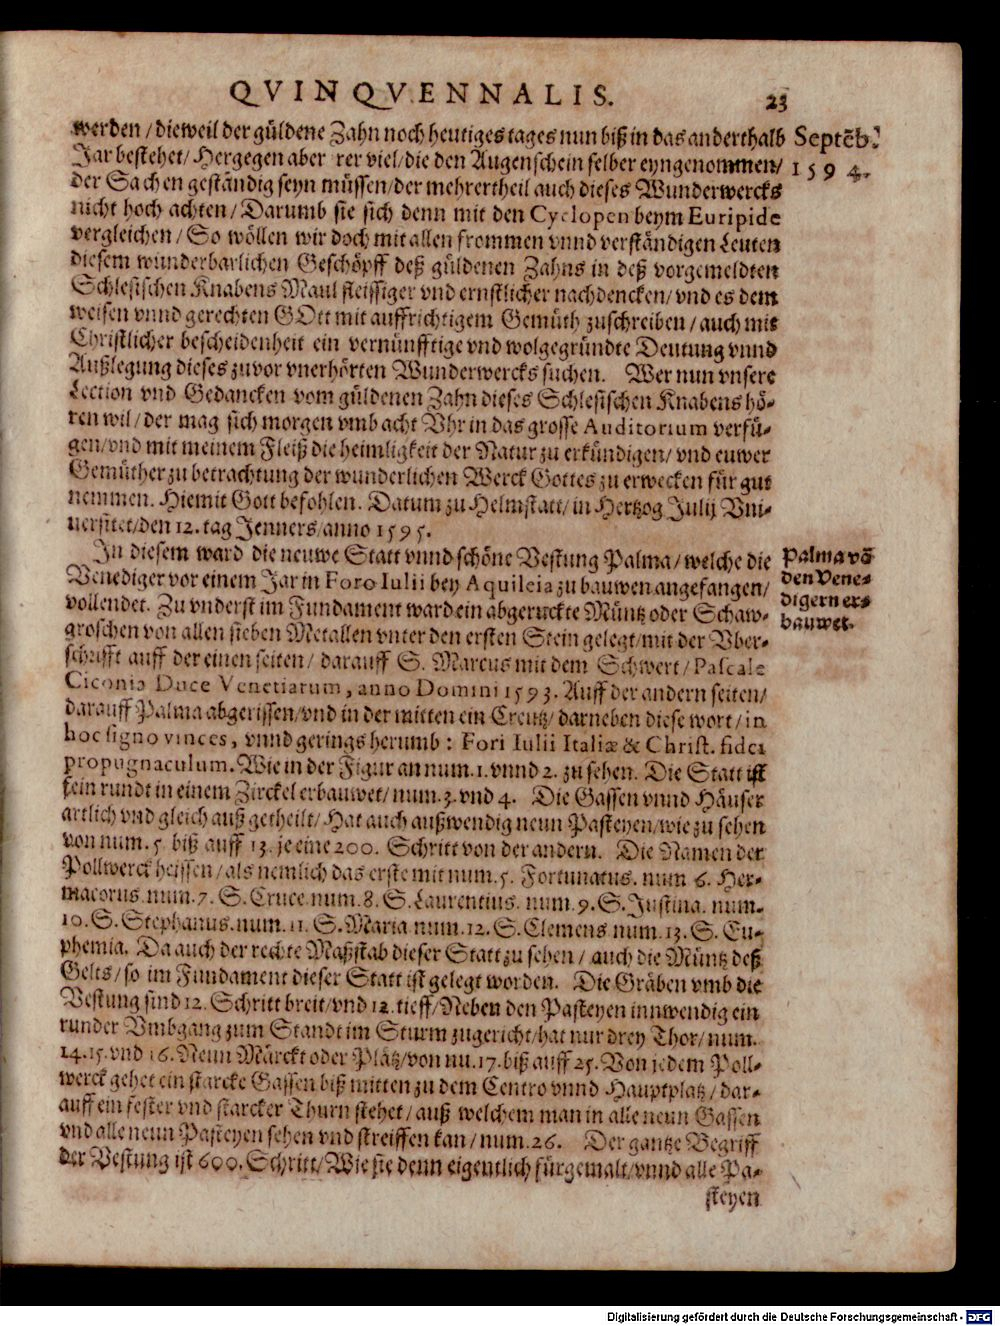 QVINQVENNALIS. 23
werden / dieweil der güldene Zahn noch heutiges tages nun biß in das anderthalb
Septēb.
Jar bestehet / Hergegen aber rer viel / die den Augenschein selber eyngenommen /
1594.
der Sachen geständig seyn müssen / der mehrertheil auch dieses Wunderwercks
nicht hoch achten / Darumb sie sich denn mit den Cyclopen beym Euripide
vergleichen / So wöllen wir doch mit allen frommen vnnd verständigen Leuten
diesem wunderbarlichen Geschöpff deß güldenen Zahns in deß vorgemeldten
Schlesischen Knabens Maul fleissiger vnd ernstlicher nachdencken / vnd es dem
weisen vnnd gerechten GOtt mit auffrichtigem Gemüth zuschreiben / auch mit
Christlicher bescheidenheit ein vernünfftige vnd wolgegründte Deutung vnnd
Außlegung dieses zuvor vnerhörten Wunderwercks suchen. Wer nun vnsere
Lection vnd Gedancken vom güldenen Zahn dieses Schlesischen Knabens hö-
ren wil / der mag sich morgen vmb acht Vhr in das grosse Auditorium verfü-
gen / vnd mit meinem Fleiß die heimligkeit der Natur zu erkündigen / vnd euwer
Gemüther zu betrachtung der wunderlichen Werck Gottes zu erwecken für gut
nemmen. Hiemit Gott befohlen. Datum zu Helmstatt / in Hertzog Julij Vni-
uersitet / den 12. tag Jenners / anno 1595.
In diesem ward die neuwe Statt vnnd schöne Vestung Palma / welche die
Palma vō
den Vene-
digern er-
bauwet.
Venediger vor einem Jar in Foro Iulii bey Aquileia zu bauwen angefangen /
vollendet. Zu vnderst im Fundament ward ein abgeruckte Müntz oder Schaw-
groschen von allen sieben Metallen vnter den ersten Stein gelegt / mit der Vber-
schrifft auff der einen seiten / darauff S. Marcus mit dem Schwert / Pascale
Ciconia Duce Venetiarum, anno Domini 1593. Auff der andern seiten /
darauff Palma abgerissen / vnd in der mitten ein Creutz / darneben diese wort / in
hoc signo vinces, vnnd gerings herumb : Fori Iulii Italiæ & Christ. fidei
propugnaculum. Wie in der Figur an num. 1. vnnd 2. zu sehen. Die Statt ist
fein rundt in einem Zirckel erbauwet / num. 3. vnd 4. Die Gassen vnnd Häuser
artlich vnd gleich auß getheilt / Hat auch außwendig neun Pasteyen / wie zu sehen
von num. 5. biß auff 13. je eine 200. Schritt von der andern. Die Namen der
Pollwerck heissen / als nemlich das erste mit num. 5. Fortunatus. num 6. Her-
macorus. num. 7. S. Cruce. num. 8. S. Laurentius. num. 9. S. Justina. num.
10. S. Stephanus. num. 11. S. Maria. num. 12. S. Clemens num. 13. S. Eu-
phemia. Da auch der rechte Maßstab dieser Statt zu sehen / auch die Müntz deß
Gelts / so im Fundament dieser Statt ist gelegt worden. Die Gräben vmb die
Vestung sind 12. Schritt breit / vnd 12. tieff / Neben den Pasteyen innwendig ein
runder Vmbgang zum Standt im Sturm zugericht / hat nur drey Thor / num.
14. 15. vnd 16. Neun Märckt oder Plätz / von nu. 17. biß auff 25. Von jedem Poll-
werck gehet ein starcke Gassen biß mitten zu dem Centro vnnd Hauptplatz / dar-
auff ein fester vnd starcker Thurn stehet / auß welchem man in alle neun Gassen
vnd alle neun Pasteyen sehen vnd streiffen kan / num. 26. Der gantze Begriff
der Vestung ist 600. Schritt / Wie sie denn eigentlich fürgemalt / vnnd alle Pa-
steyen
Digitalisierung gefördert durch die Deutsche Forschungsgemeinschaft - DFG